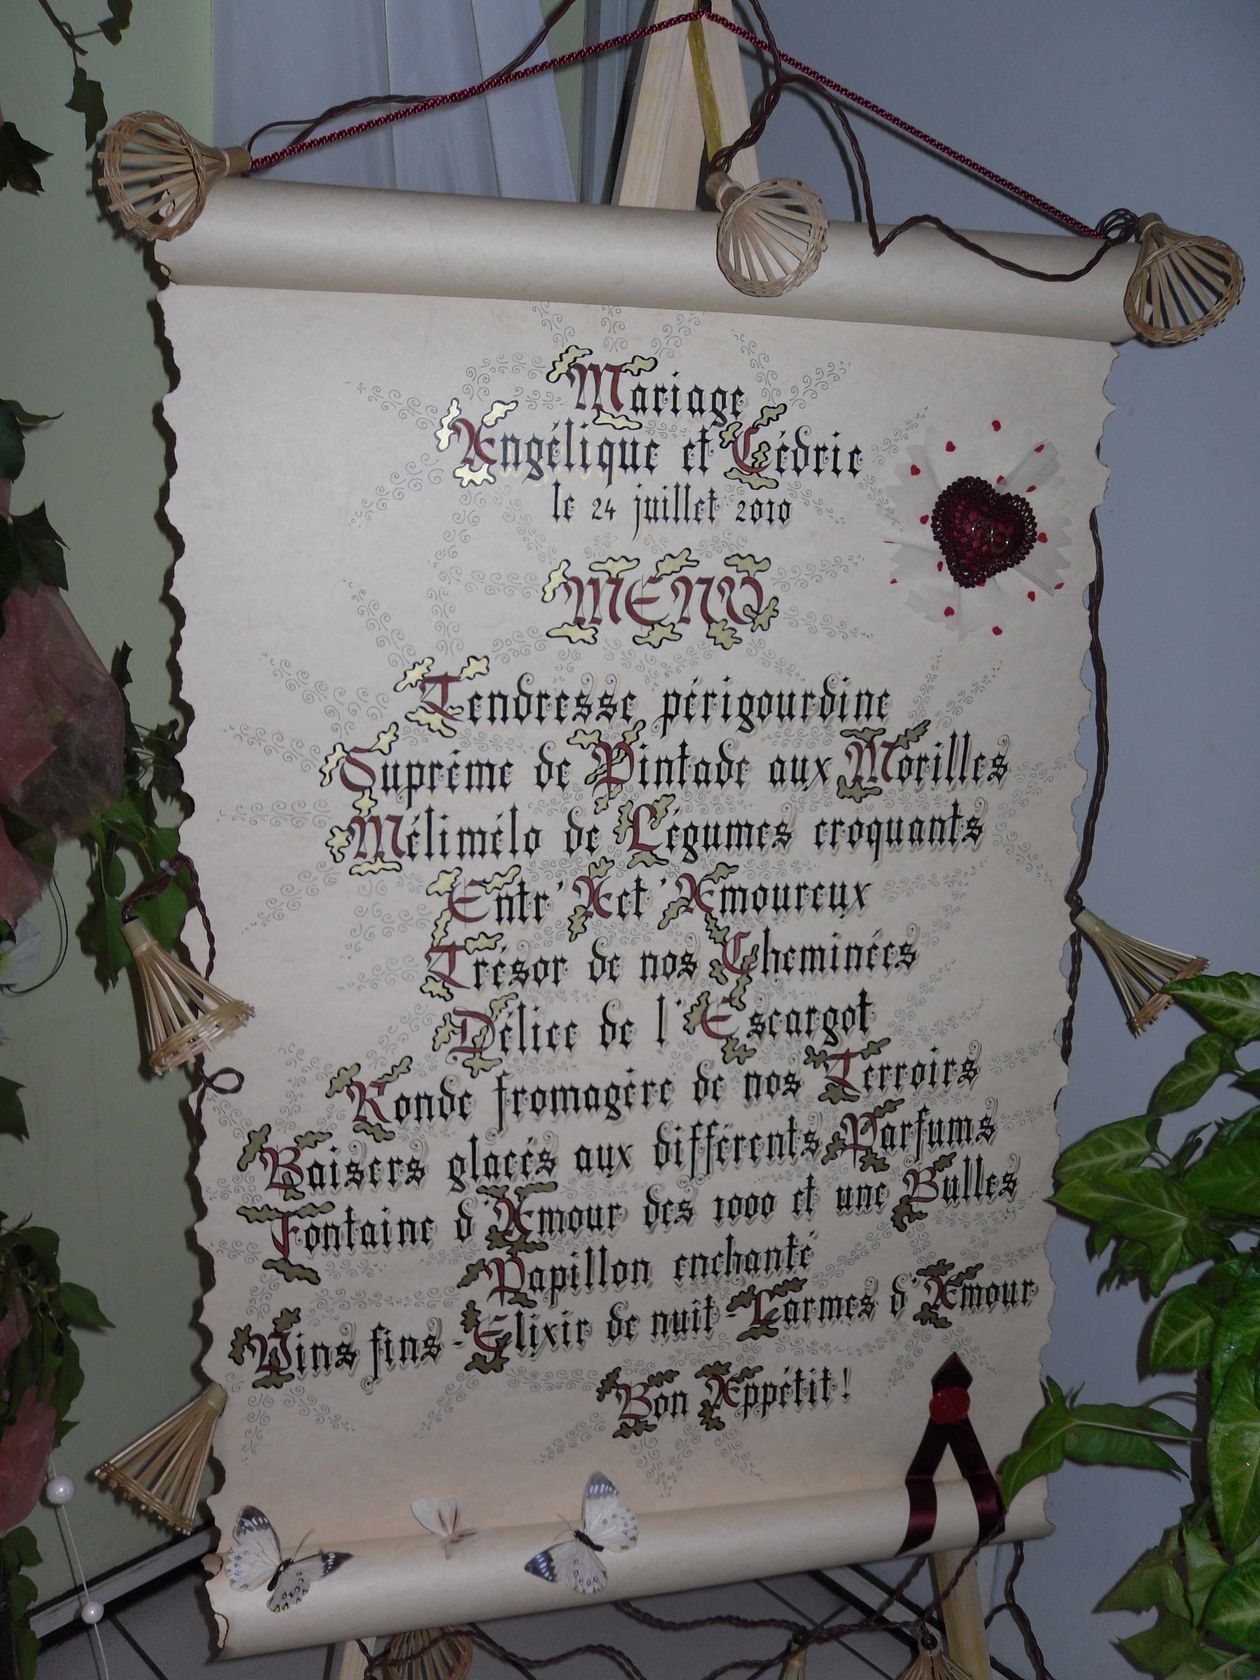 Mariage
Angélique et Cédric
le 24 juillet 2010
MENU
Tendresse périgourdine
Suprême de Pintade aux Morilles
Mélimélo de Légumes croquants
Entr'Act'Amoureux
Trésor de nos Cheminées
Délice de l'Escargot
Ronde fromagère de nos Terroirs
Baisers glacés aux différents Parfums
Fontaine d'Amour des 1000 et une Bulles
Papillon enchanté
Vins fins - Elixir de nuit - Larmes d'Amour
Bon Appétit !